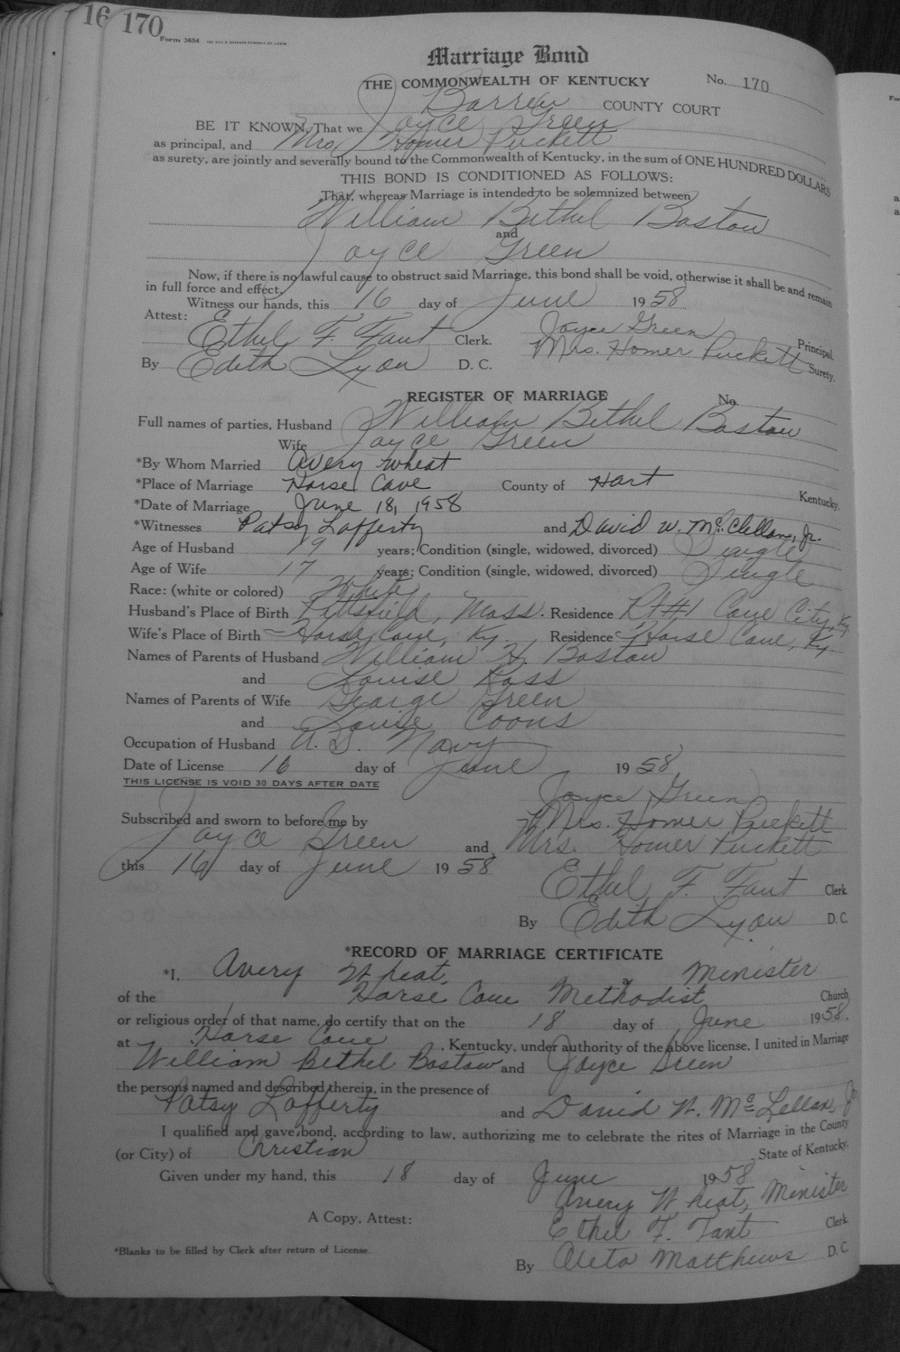 16 170
Form 3454
Marriage Bond
THE COMMONWEALTH OF KENTUCKY No. 170
Barren COUNTY COURT
BE IT KNOWN, That we Joyce Green
as principal, and Mrs. Homer Puckett
as surety, are jointly and severally bound to the Commonwealth of Kentucky, in the sum of ONE HUNDRED DOLLARS
THIS BOND IS CONDITIONED AS FOLLOWS:
That, whereas Marriage is intended to be solemnized between
William Bethel Bastow
and
Joyce Green
Now, if there is no lawful cause to obstruct said Marriage, this bond shall be void, otherwise it shall be and remain
in full force and effect.
Witness our hands, this 16 day of June 1958
Attest: Joyce Green Principal.
Ethel F. Fant Clerk. Mrs. Homer Puckett Surety.
By Edith Lyon D. C.
REGISTER OF MARRIAGE No.
Full names of parties, Husband William Bethel Bastow
Wife Joyce Green
*By Whom Married Avery Wheat
*Place of Marriage Horse Cave County of Hart Kentucky.
*Date of Marriage June 18, 1958
*Witnesses Patsy Lafferty and David W. McClellan, Jr.
Age of Husband 19 years; Condition (single, widowed, divorced) Single
Age of Wife 17 years; Condition (single, widowed, divorced) Single
Race: (white or colored) White
Husband's Place of Birth Pittsfield, Mass. Residence Rt #1 Cave City, Ky
Wife's Place of Birth Horse Cave, Ky. Residence Horse Cave, Ky
Names of Parents of Husband William H. Bastow
and Louise Ross
Names of Parents of Wife George Green
and Louise Coons
Occupation of Husband U. S. Navy
Date of License 16 day of June 1958
THIS LICENSE IS VOID 30 DAYS AFTER DATE
Joyce Green
Subscribed and sworn to before me by Mrs. Homer Puckett
Joyce Green and Mrs. Homer Puckett
this 16 day of June 1958
Ethel F. Fant Clerk
By Edith Lyon D. C.
*RECORD OF MARRIAGE CERTIFICATE
*I, Avery Wheat, Minister
of the Horse Cave Methodist Church
or religious order of that name, do certify that on the 18 day of June 1958.
at Horse Cave, Kentucky, under authority of the above license, I united in Marriage
William Bethel Bastow and Joyce Green
the persons named and described therein, in the presence of
Patsy Lafferty and David W. McLellan, Jr
I qualified and gave bond, according to law, authorizing me to celebrate the rites of Marriage in the County
(or City) of Christian, State of Kentucky.
Given under my hand, this 18 day of June 1958
Avery Wheat, Minister
A Copy, Attest: Ethel F. Fant Clerk
*Blanks to be filled by Clerk after return of License.
By Aleta Matthews D. C.